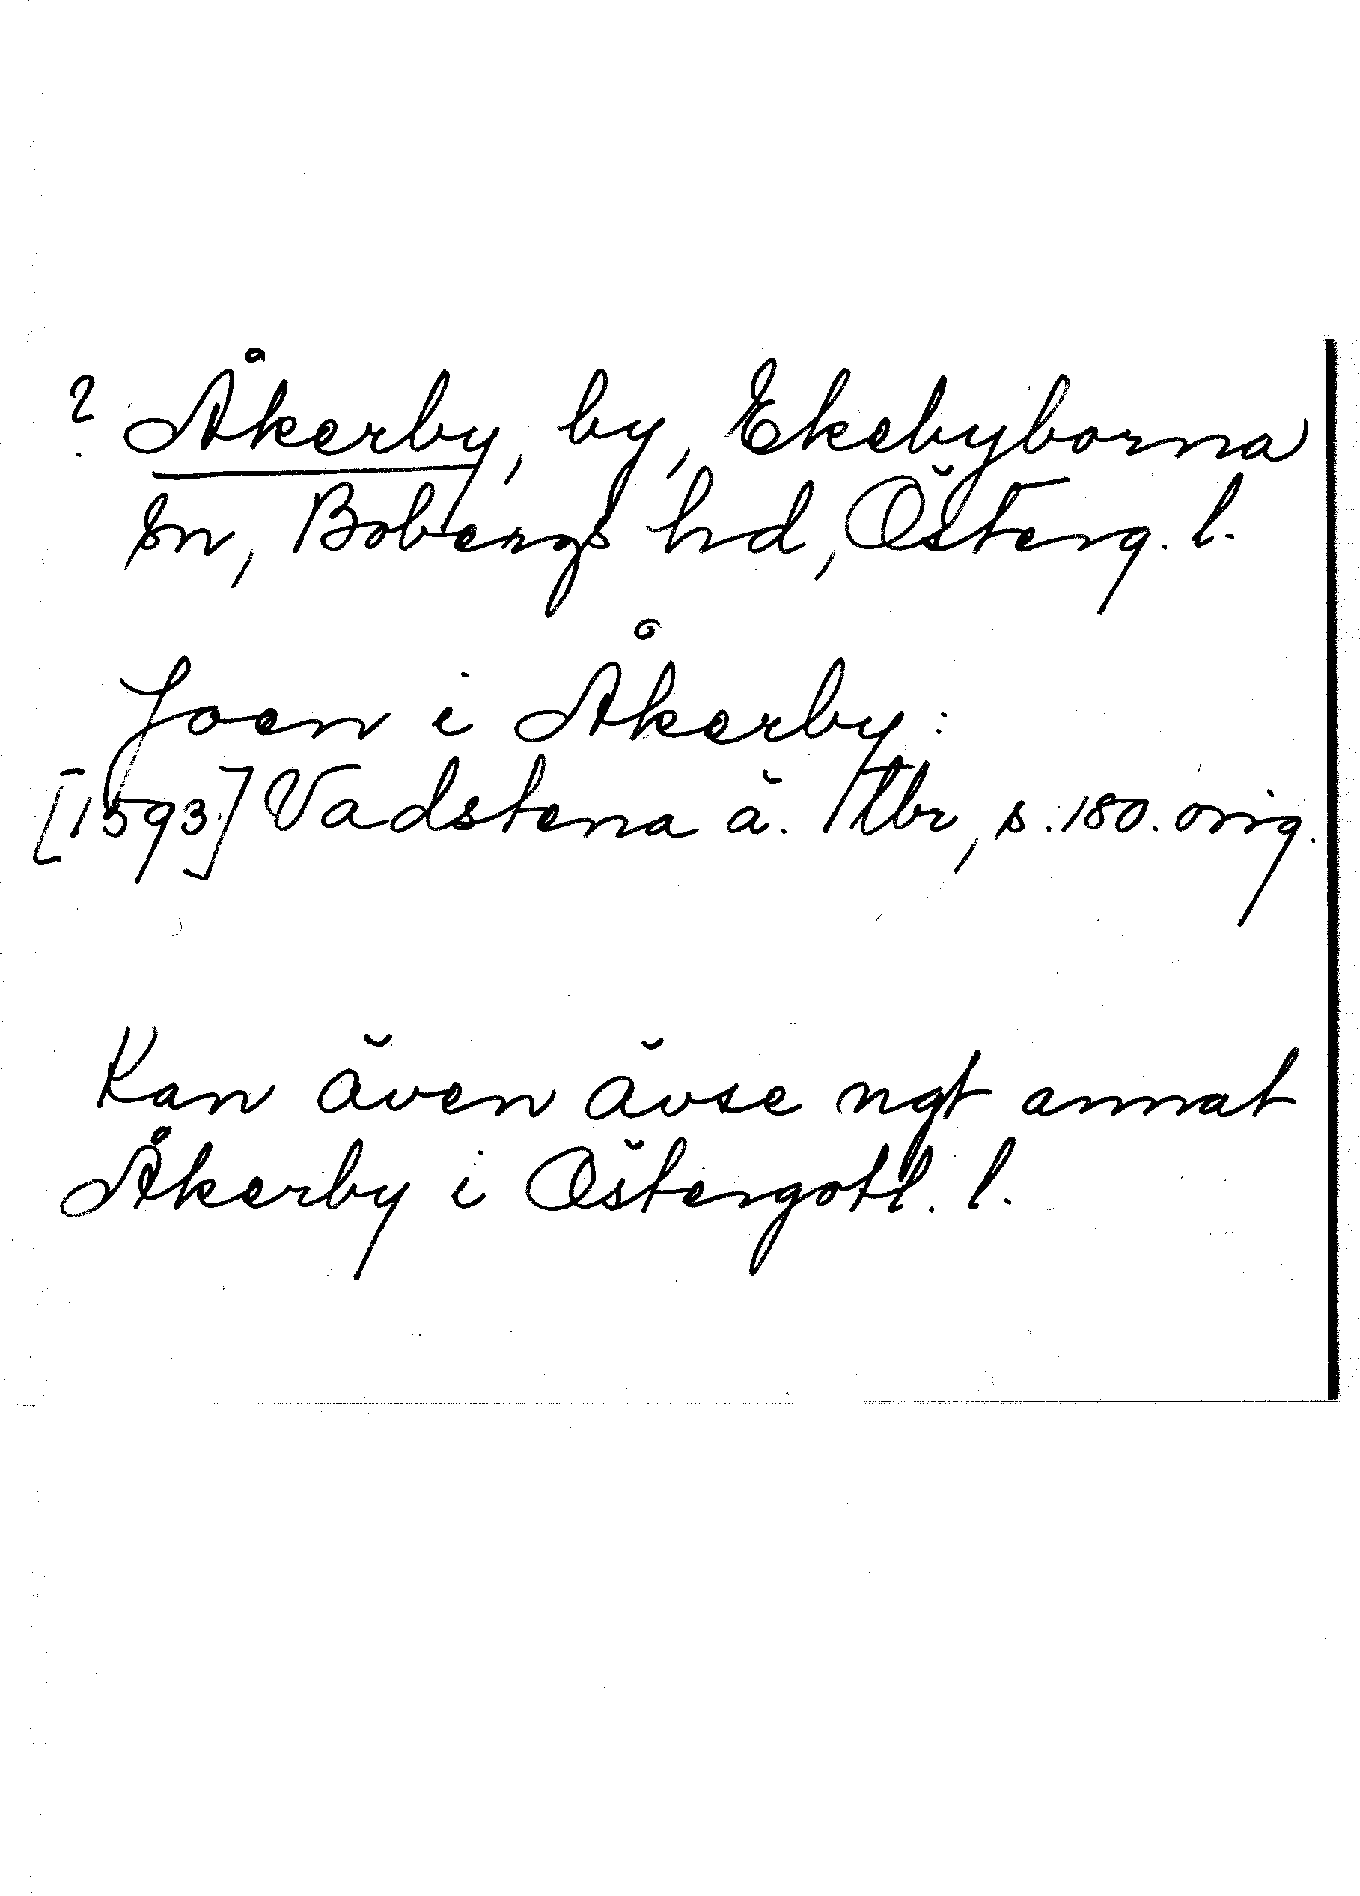 ? Åkerby, by, Ekebyborna
sn, Bobergs hd, Österg. l.
Joen i Åkerby:
[1593] Vadstena ä. Tbr, s. 180. orig.
Kan även ävse ngt annat
Åkerby i Östergötl. l.